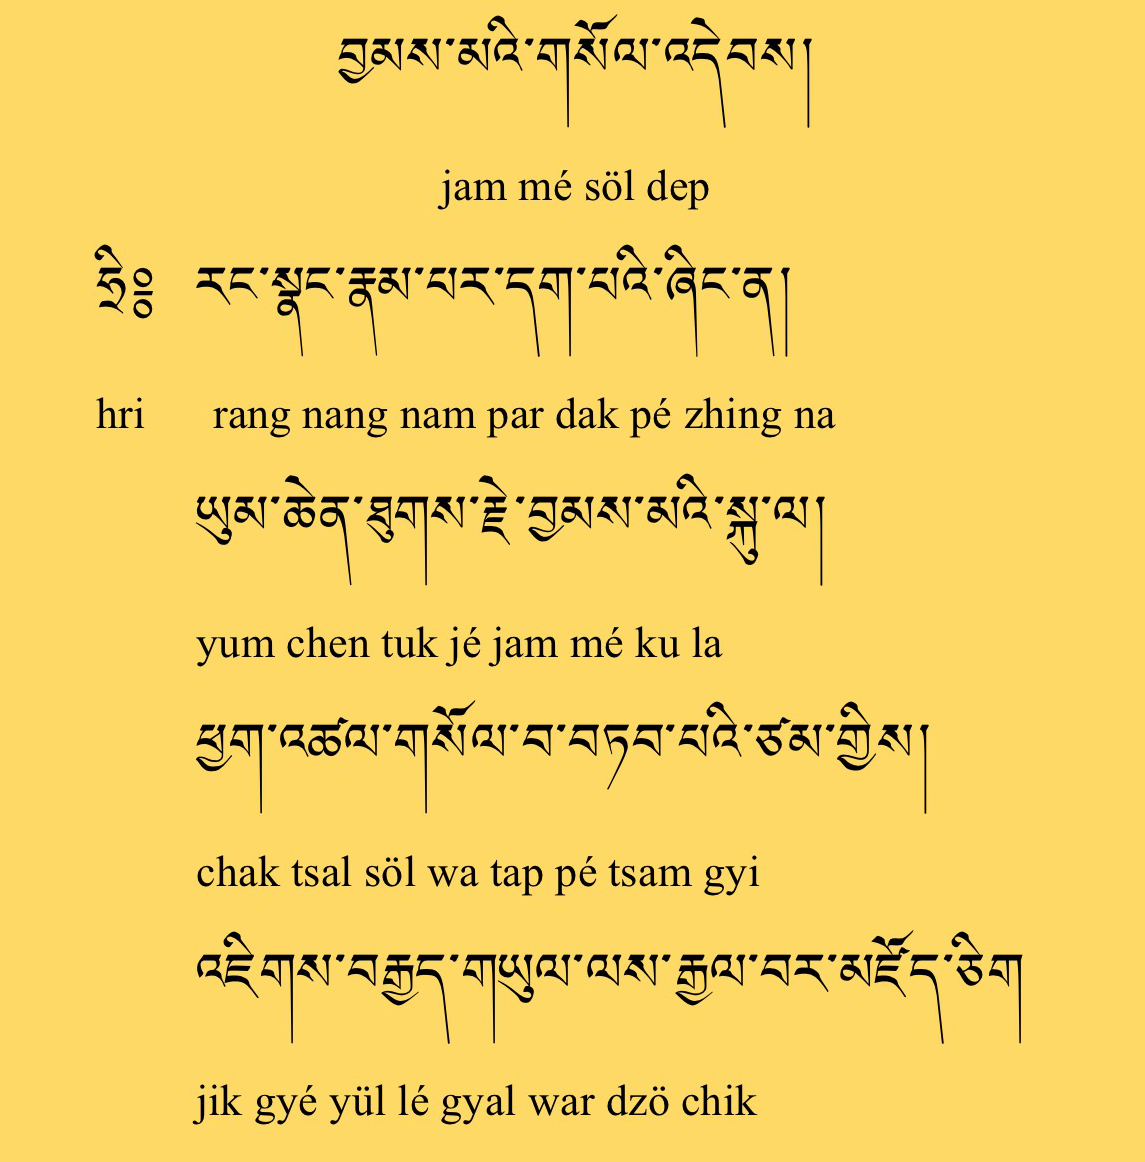 བྱམས་མའི་གསོལ་འདེབས།
jam mé söl dep
ཧྲི༔ རང་སྣང་རྣམ་པར་དག་པའི་ཞིང་ན།
hri rang nang nam par dak pé zhing na
ཡུམ་ཆེན་ཐུགས་རྗེ་བྱམས་མའི་སྐུ་ལ།
yum chen tuk jé jam mé ku la
ཕྱག་འཚལ་གསོལ་བ་བཏབ་པའི་ཙམ་གྱིས།
chak tsal söl wa tap pé tsam gyi
འཇིགས་བརྒྱད་གཡུལ་ལས་རྒྱལ་བར་མཛོད་ཅིག
jik gyé yül lé gyal war dzö chik